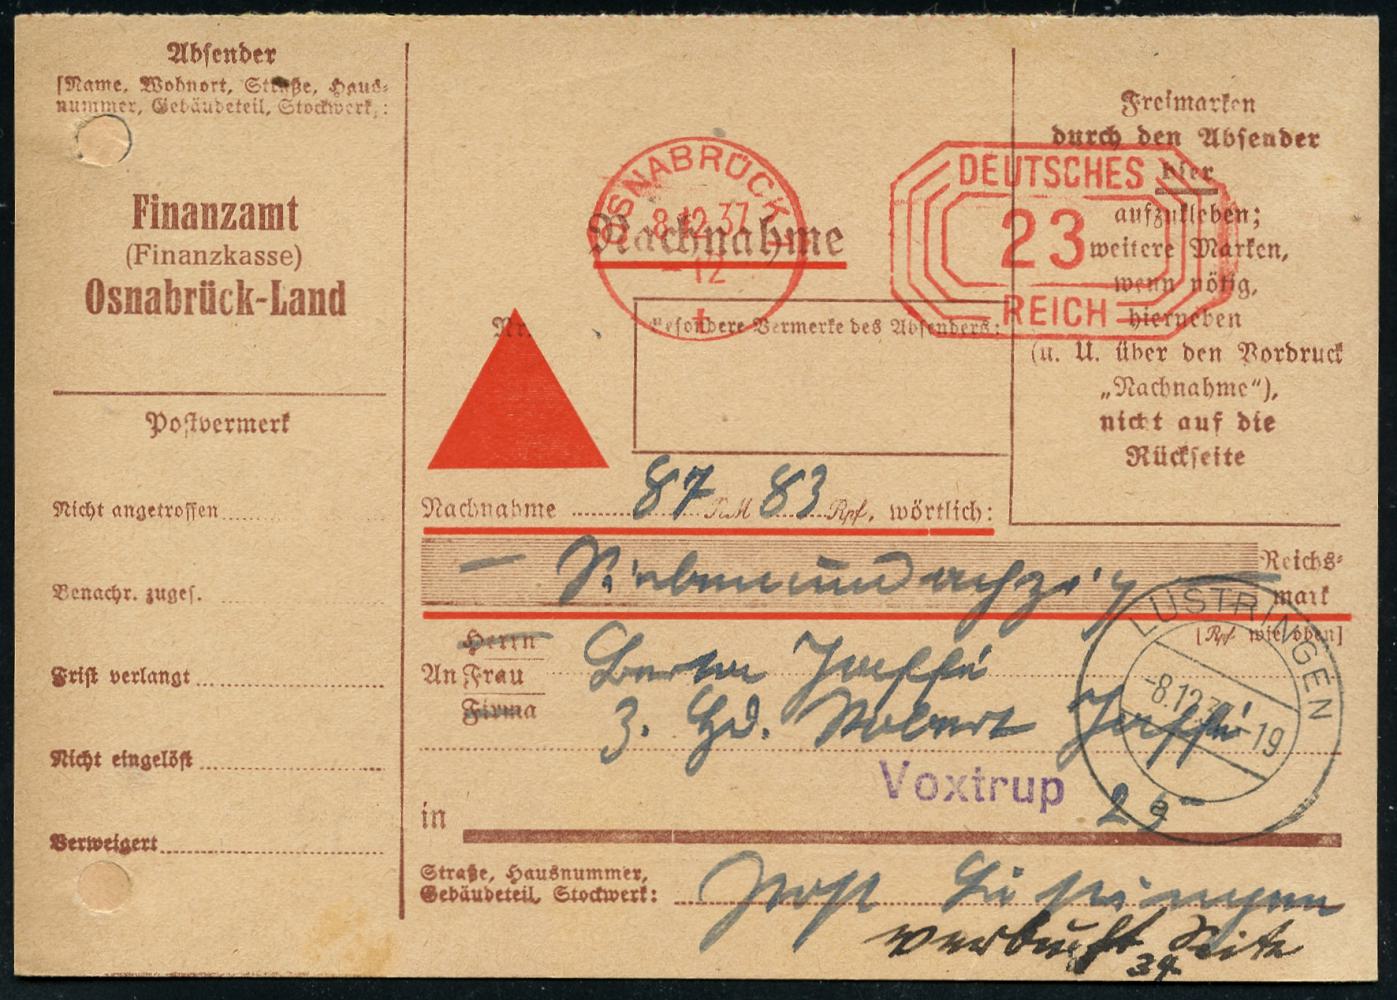 Absender
[Name, Wohnort, Straße, Haus-
nummer, Gebäudeteil, Stockwerk,:
Finanzamt
(Finanzkasse)
Osnabrück-Land
Postvermerk
Nicht angetroffen
Benachr. zuges.
Frist verlangt
Nicht eingelöst
Verweigert
OSNABRÜCK
8.12.37
-12
t
Nachnahme
DEUTSCHES
23
REICH
Freimarken
durch den Absender
hier
aufzukleben;
weitere Marken,
wenn nötig,
hierneben
(u. U. über den Vordruck
„Nachnahme“),
nicht auf die
Rückseite
Nr.
Besondere Vermerke des Absenders:
Nachnahme 87 RM 83 Rpf, wörtlich:
— Siebenundachzig — Reichs-
mark
[Rpf wie oben]
Herrn
An Frau
Firma
Jaffé
z. Hd. Jaffé
Voxtrup
in
LUSTRINGEN
-8.12.37-19
a
Straße, Hausnummer,
Gebäudeteil, Stockwerk:
Post
verbucht Seite
39.